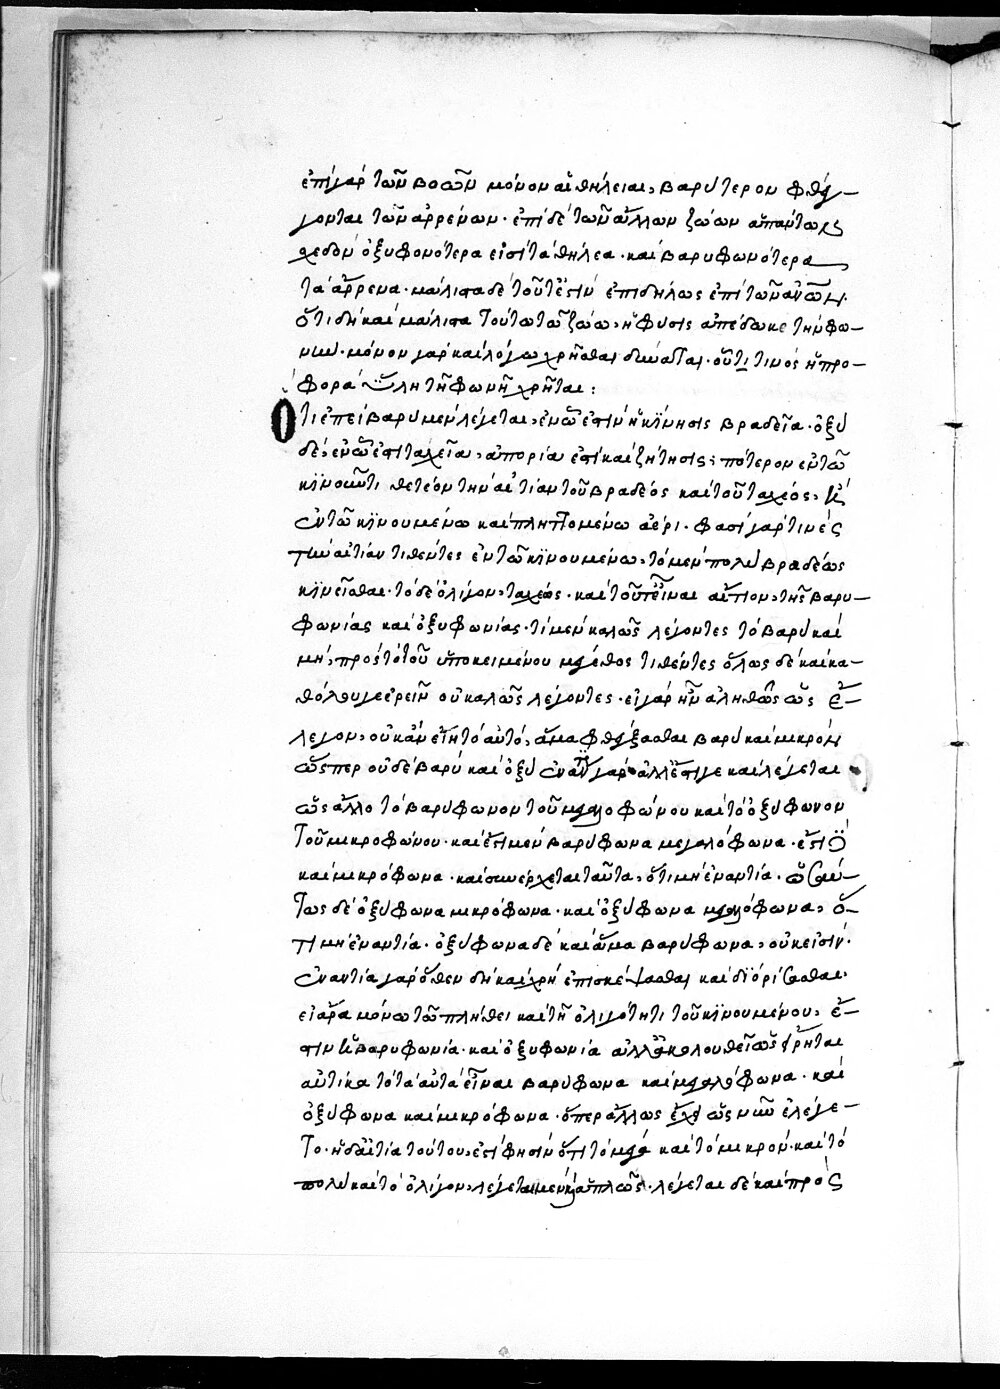 ἐπὶ γὰρ τῶν βοῶν μόνον αἱ θήλειαι, βαρύτερον φθέγ-
γονται τῶν ἀρρένων· ἐπὶ δὲ τῶν ἄλλων ζώων ἁπάντων σ
χεδὸν ὀξυφονότερα εἰσὶ τὰ θήλεα· καὶ βαρυφωνότερα
τὰ ἄρρενα· μάλιστα δὲ τοῦτ' ἐστὶν ἐπιδήλως ἐπὶ τῶν ἀνῶν·
ὅτι δὴ καὶ μάλιστα τούτω τῶ ζώω, ἡ φύσις ἀπέδωκε τὴν φω-
νὴν· μόνον γὰρ καὶ λόγω χρῆσθαι δύναται· οὗτι τινὸς ἡ προ-
φορὰ ὕλη τῇ φωνῇ χρῆται:
Ὅτι ἐπεὶ βαρὺ μὲν λέγεται, ἐν ὧ ἐστὶν ἡ κίνησις βραδεῖα· ὀξὺ
δὲ, ἐν ὧ ἐστὶ ταχεῖα, ἀπορία ἐστὶ καὶ ζήτησις; πότερον ἐν τῶ
κινοῦντι θετέον τὴν αἰτίαν τοῦ βραδέος καὶ τοῦ ταχέος, ἢ
ἐν τῶ κινουμένω καὶ πληττομένω ἀέρι· φασὶ γάρ τινες
τὴν αἰτίαν τιθέντες ἐν τῶ κινουμένω, τὸ μὲν πολὺ βραδέως
κινεῖσθαι· τὸ δὲ ὀλίγον, ταχέως· καὶ τοῦτ' εἶναι αἴτιον, τῆς βαρυ-
φωνίας καὶ ὀξυφωνίας· τὶ μὲν καλῶς λέγοντες τὸ βαρὺ καὶ
μὴ, πρὸς τὸ τοῦ ὑποκειμένου μέγεθος τιθέντες ὅλως δὲ καὶ κα-
θόλου γε ἐρεῖν οὐ καλῶς λέγοντες· εἰ γὰρ ἦν ἀληθῶς ὡς ἔ-
λεγον, οὐκ ἂν εἴη τὸ αὐτὸ, ἅμα φθέγξασθαι βαρὺ καὶ μικρὸν
ὥσπερ οὐδὲ βαρὺ καὶ ὀξὺ ἐναντί γάρ· ἀλλ' ἔστι γε καὶ λέγεται
ὡς ἄλλο τὸ βαρύφωνον τοῦ μεγαλοφώνου καὶ τὸ ὀξύφωνον
τοῦ μικροφώνου· καὶ ἔστι μὲν βαρύφωνα μεγαλόφωνα· ἔστι δὲ
καὶ μικρόφωνα· καὶ συνέρχεται ταῦτα, ὅτι μὴ ἐναντία· ὡσαύ-
τως δὲ ὀξύφωνα μικρόφωνα· καὶ ὀξύφωνα μεγαλόφωνα, ὅ-
τι μὴ ἐναντία· ὀξύφωνα δὲ καὶ ἅμα βαρύφωνα, οὐκ εἰσὶν·
ἐναντία γὰρ ὅθεν δὴ καὶ χρὴ ἐπισκέψασθαι καὶ διορίσασθαι·
εἰ ἄρα μόνω τῶ πλήθει καὶ τῇ ὀλιγότητι τοῦ κινουμένου, ἔ-
στιν ἡ βαρυφωνία· καὶ ὀξυφωνία ἀλλ' ἀκολουθεῖ ὡς εἴρηται
αὐτίκα τὸ τὰ αὐτὰ εἶναι βαρύφωνα καὶ μεγαλόφωνα· καὶ
ὀξύφωνα καὶ μικρόφωνα· ὅπερ ἄλλως ἔχει ὡς νῦν ἐλέγε-
το· ἡ δ' αἰτία τούτου, ἐστὶ φησὶν ὅτι τὸ μέγα καὶ τὸ μικρὸν· καὶ τὸ
πολὺ καὶ τὸ ὀλίγον, λέγεται μὲν καὶ ἁπλῶς· λέγεται δὲ καὶ πρὸς